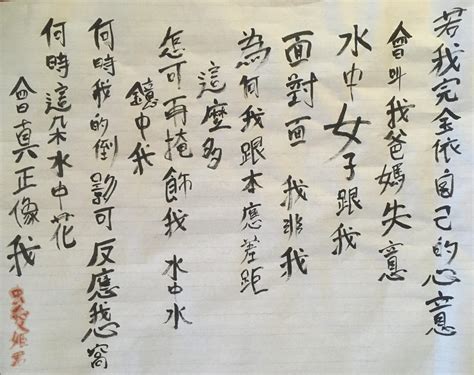 若我完全依自己的心意
會叫我爸媽失意
水中女子跟我
面對面 我非我
為何我跟本應差距
這麼多
怎可再掩飾我 水中水
鏡中我
何時我的倒影可反應我心窩
何時這朵水中花
會真正像我